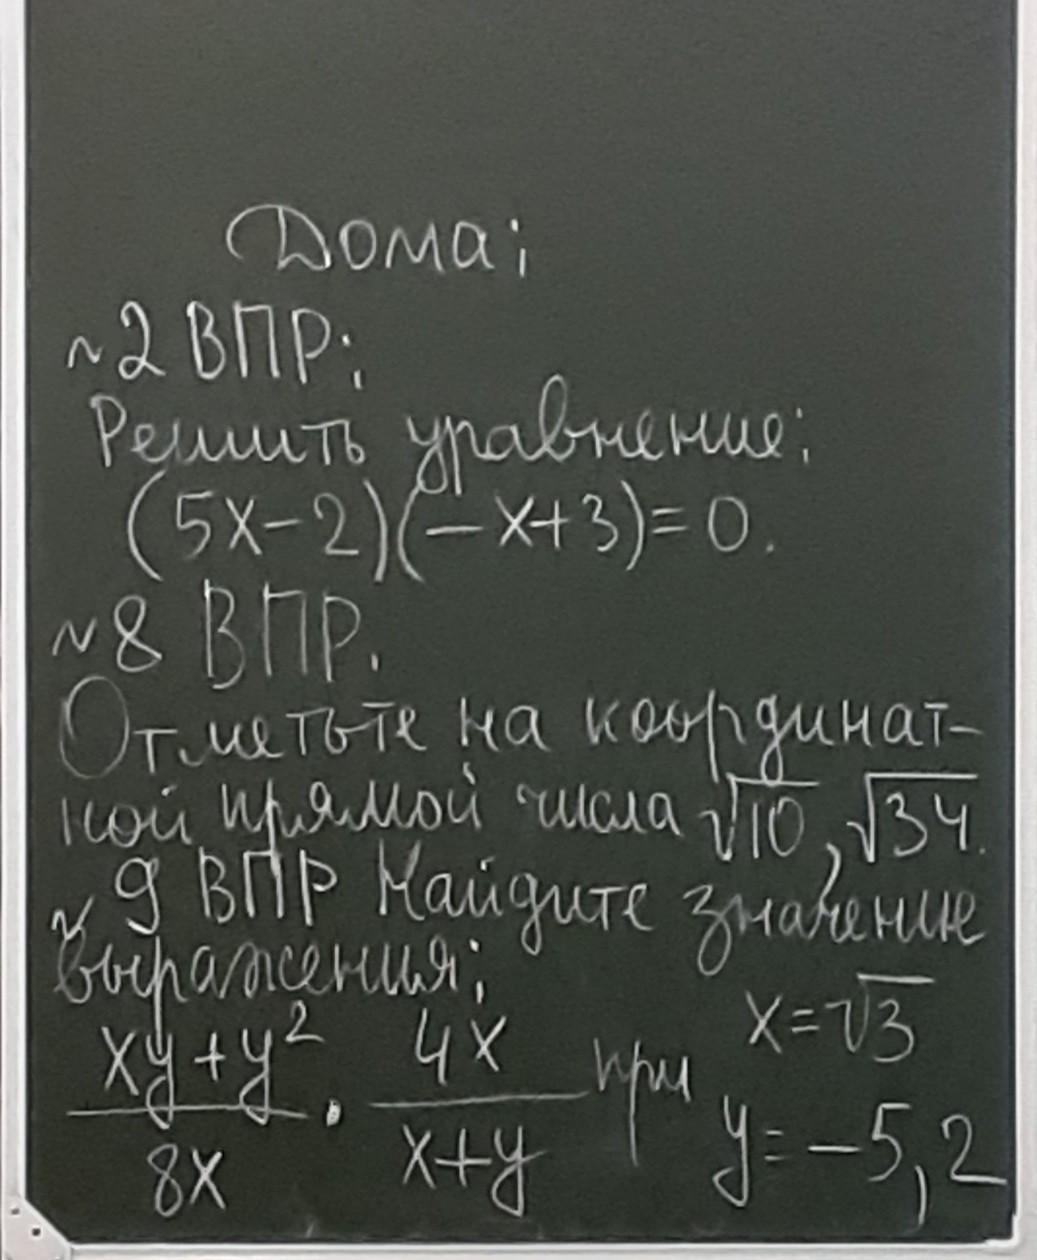 Дома:
~2 ВПР:
Решить уравнение:
(5x-2)(-x+3)=0.
~8 ВПР.
Отметьте на координат-
ной прямой числа √10, √34.
~9 ВПР Найдите значение
выражения:
(xy+y²)/(8x) · (4x)/(x+y) при x=√3
y=-5,2